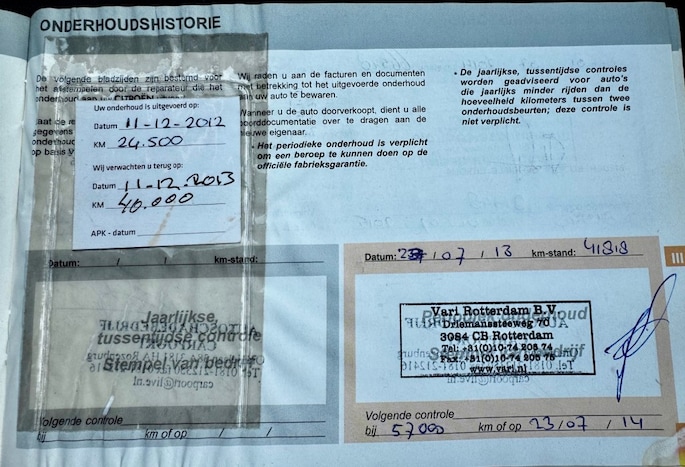 ONDERHOUDSHISTORIE
De volgende bladzijden zijn bestemd voor
het afstempelen door de reparateur die het
onderhoud aan uw CITROËN
Uw onderhoud is uitgevoerd op:
Datum 11-12-2012
KM 24.500
Wij verwachten u terug op:
Datum 11-12-2013
KM 40.000
APK - datum
Wij raden u aan de facturen en documenten
met betrekking tot het uitgevoerde onderhoud
aan uw auto te bewaren.
Wanneer u de auto doorverkoopt, dient u alle
boorddocumentatie over te dragen aan de
nieuwe eigenaar.
• Het periodieke onderhoud is verplicht
om een beroep te kunnen doen op de
officiële fabrieksgarantie.
• De jaarlijkse, tussentijdse controles
worden geadviseerd voor auto's
die jaarlijks minder rijden dan de
hoeveelheid kilometers tussen twee
onderhoudsbeurten; deze controle is
niet verplicht.
Datum: / / km-stand:
Jaarlijkse,
tussentijdse controle
Stempel van bedrijf
Volgende controle
bij km of op / /
Datum: / 07 / 13 km-stand: 41818
Periodiek onderhoud
Vari Rotterdam B.V.
Driemanssteeweg 70
3084 CB Rotterdam
Tel: +31(0)10-74 203 74
Fax: +31(0)10-74 203 75
www.vari.nl
Volgende controle
bij 57000 km of op 23/07 / 14
III